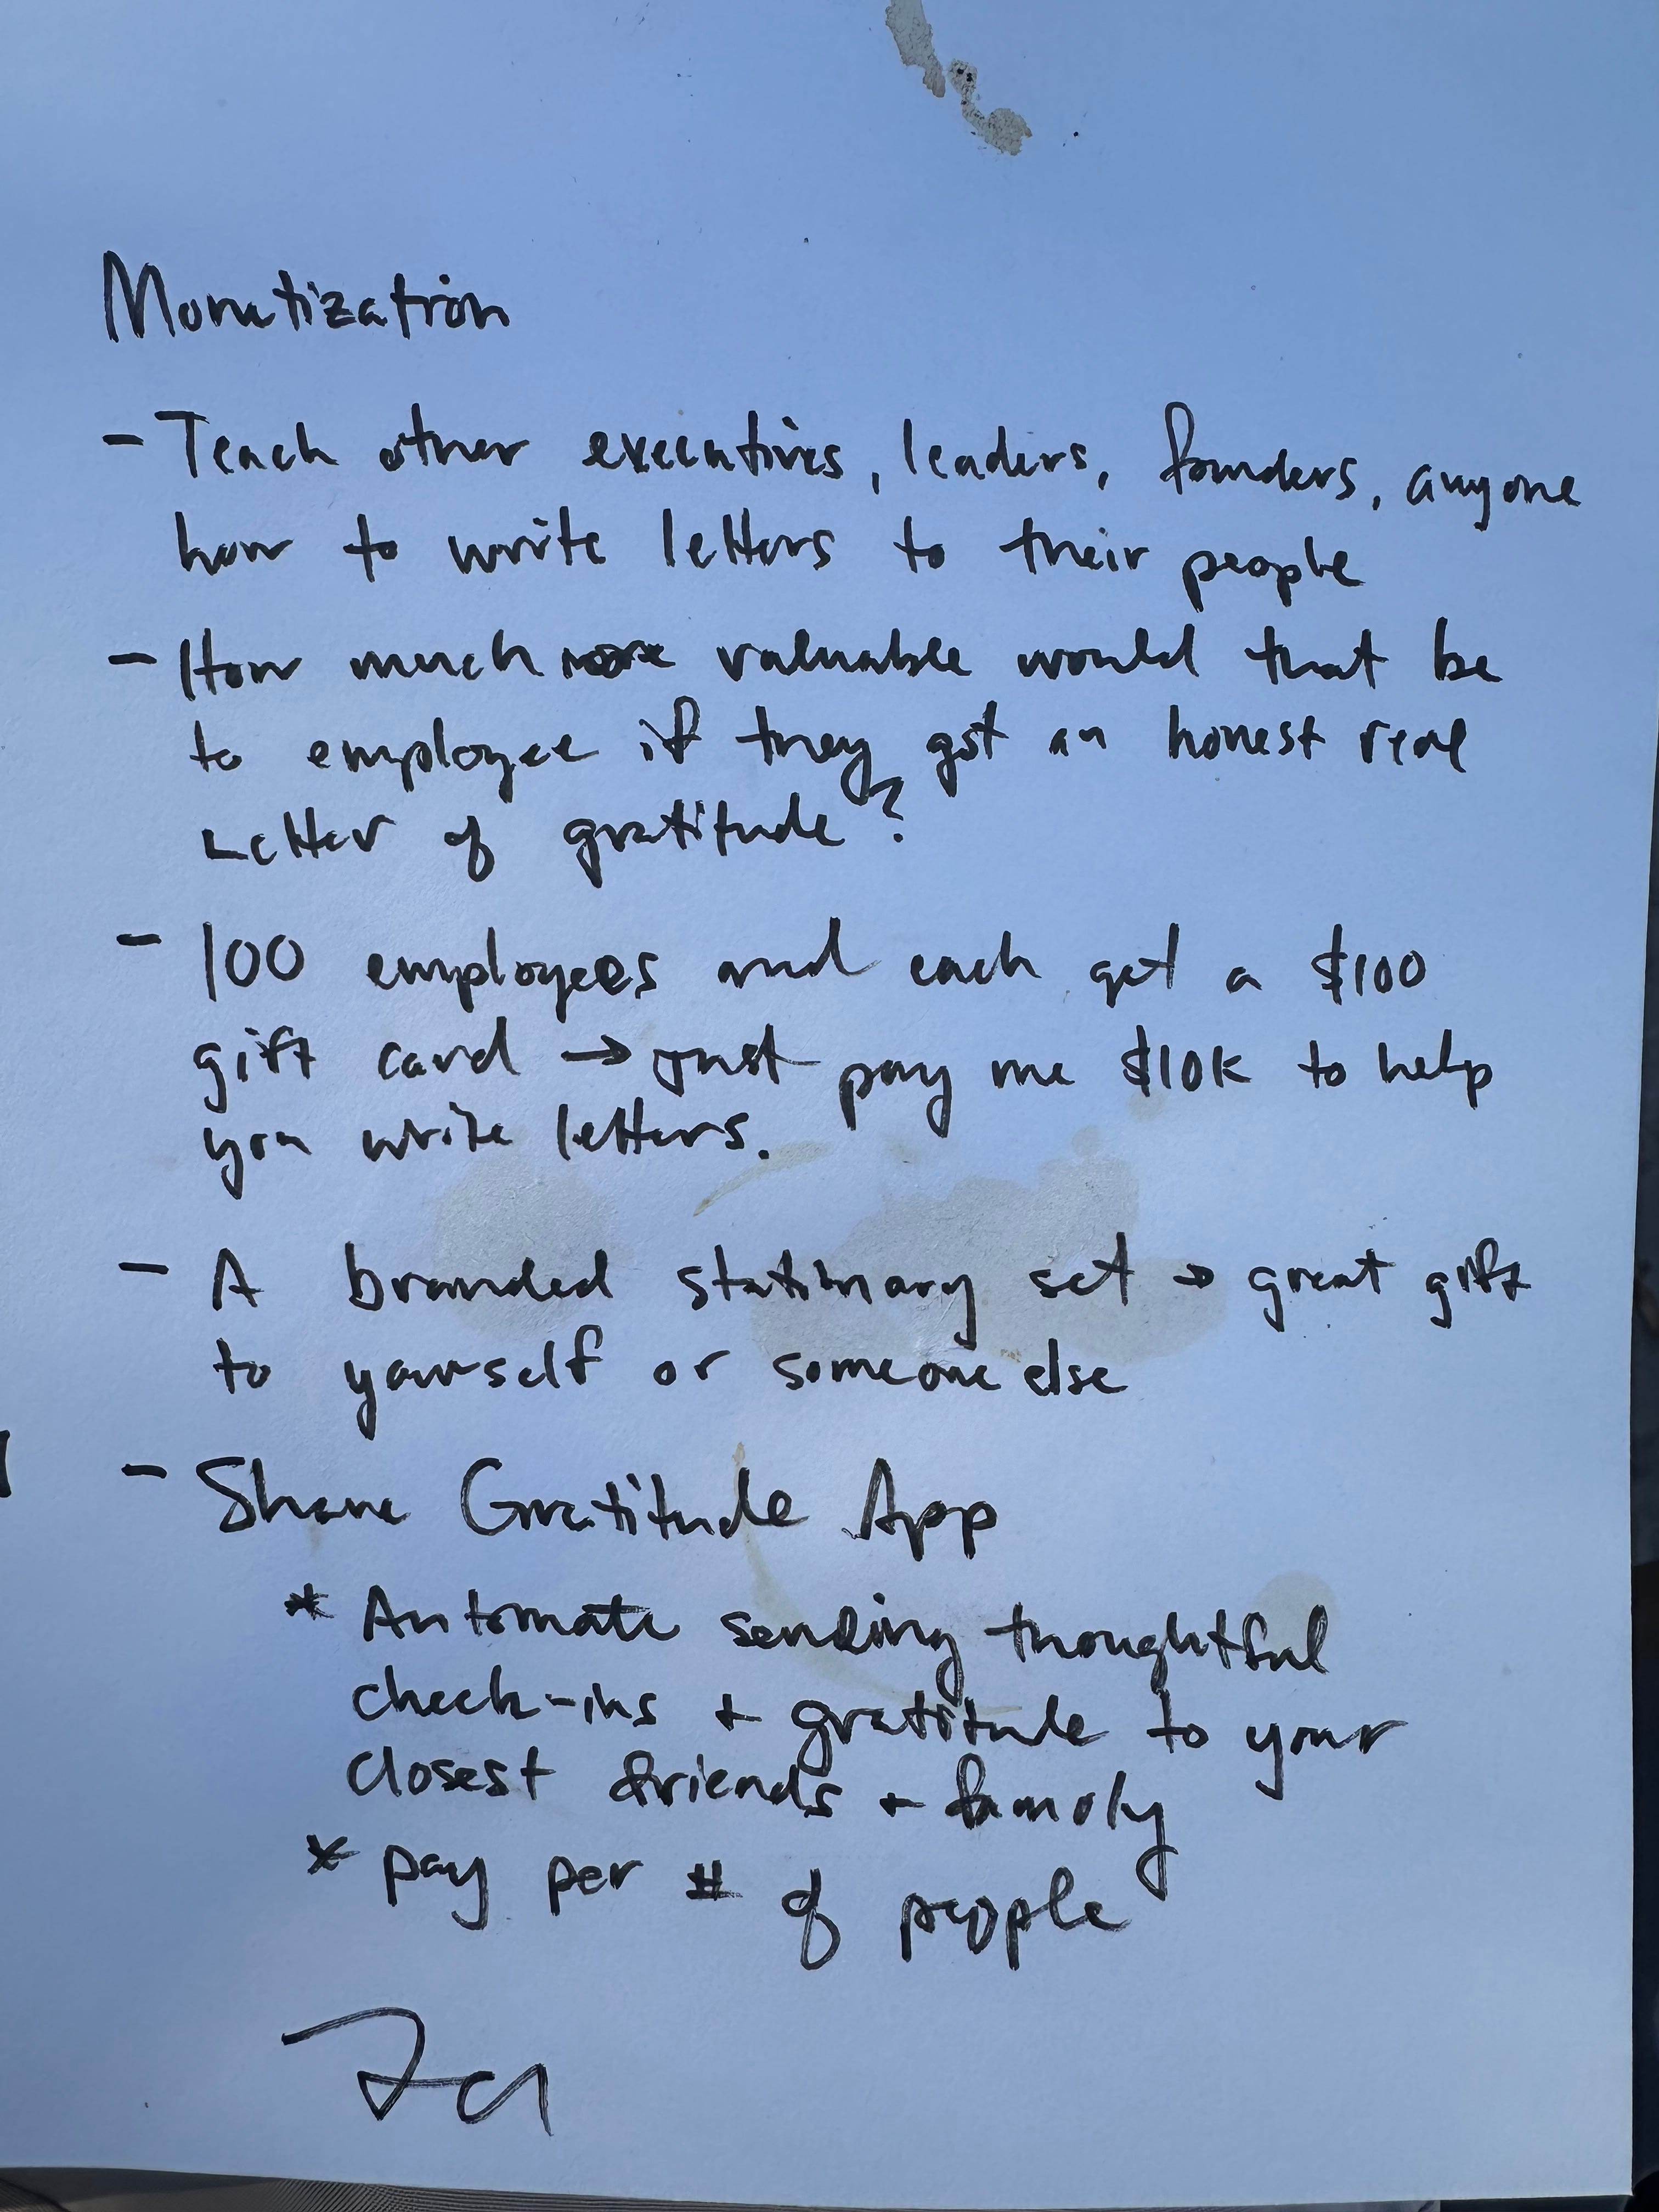 Monetization
- Teach other executives, leaders, founders, anyone
how to write letters to their people
- How much more valuable would that be
to employee if they got an honest real
Letter of gratitude?
- 100 employees and each get a $100
gift card → Just pay me $10K to help
you write letters.
- A branded stationary set → great gift
to yourself or someone else
- Share Gratitude App
* Automate sending thoughtful
check-ins + gratitude to your
closest friends + family
* pay per # of people